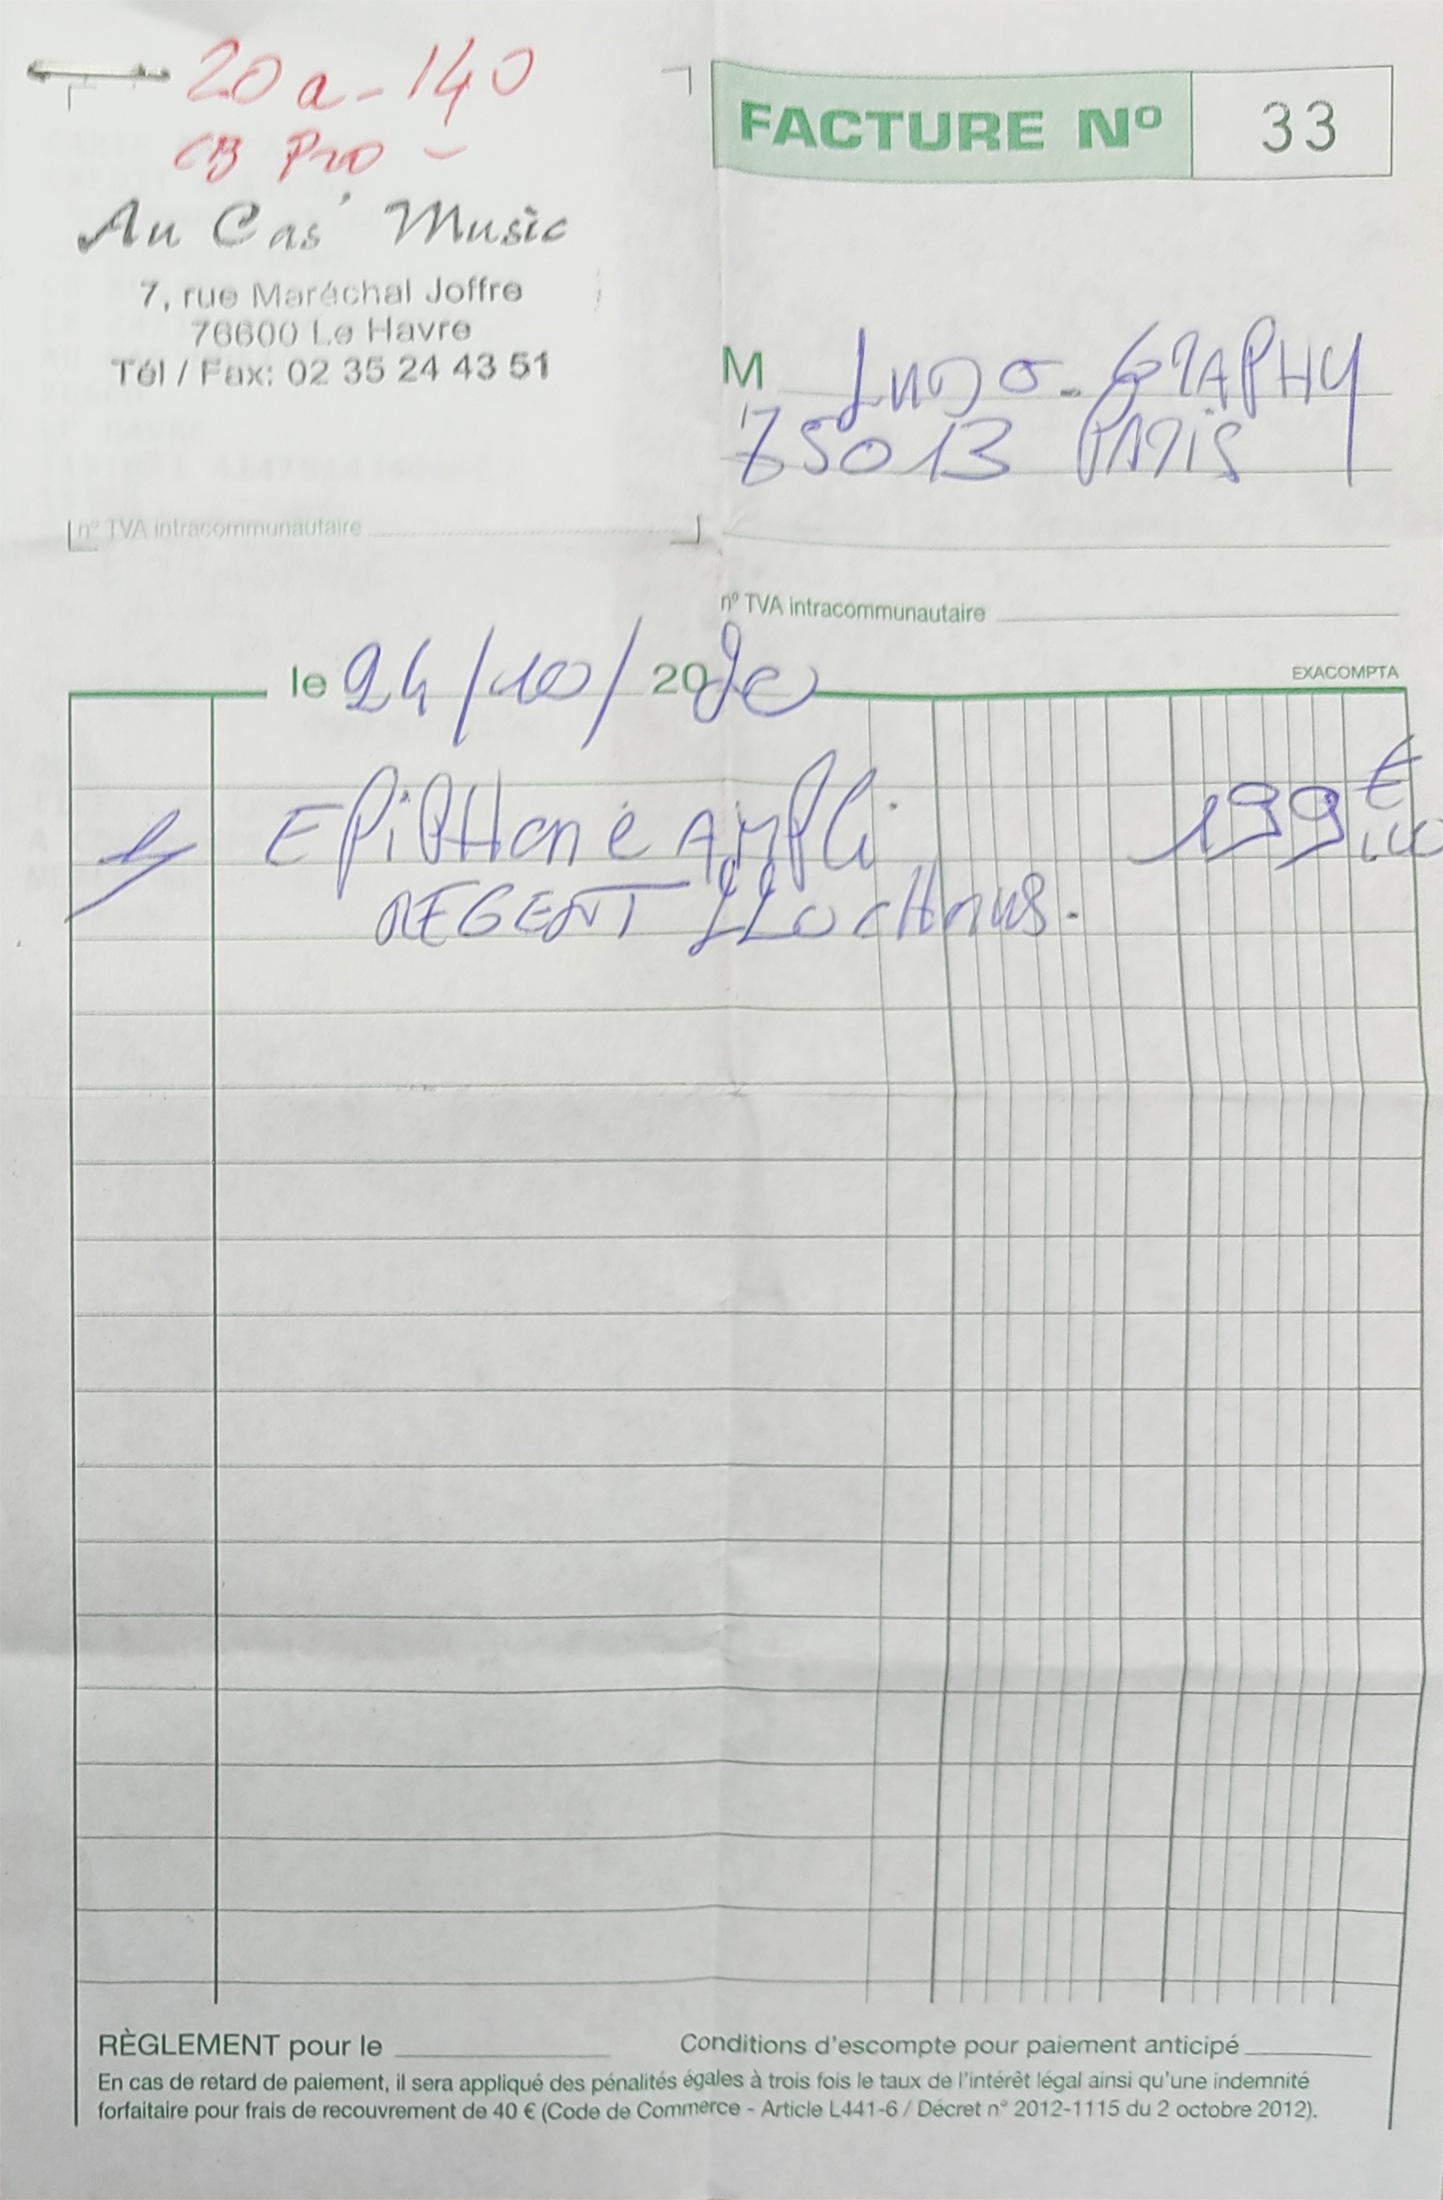 20a-140
CB Pro -
FACTURE Nº 33
Au Cas' Music
7, rue Maréchal Joffre
76600 Le Havre
Tél / Fax: 02 35 24 43 51
M LUDO-GRAPHY
75013 PARIS
nº TVA intracommunautaire
nº TVA intracommunautaire
le 24/10/2020
EXACOMPTA
1 EPiPHONE AMPLi 199€
REGENT
RÈGLEMENT pour le
Conditions d'escompte pour paiement anticipé
En cas de retard de paiement, il sera appliqué des pénalités égales à trois fois le taux de l'intérêt légal ainsi qu'une indemnité
forfaitaire pour frais de recouvrement de 40 € (Code de Commerce - Article L441-6 / Décret n° 2012-1115 du 2 octobre 2012).